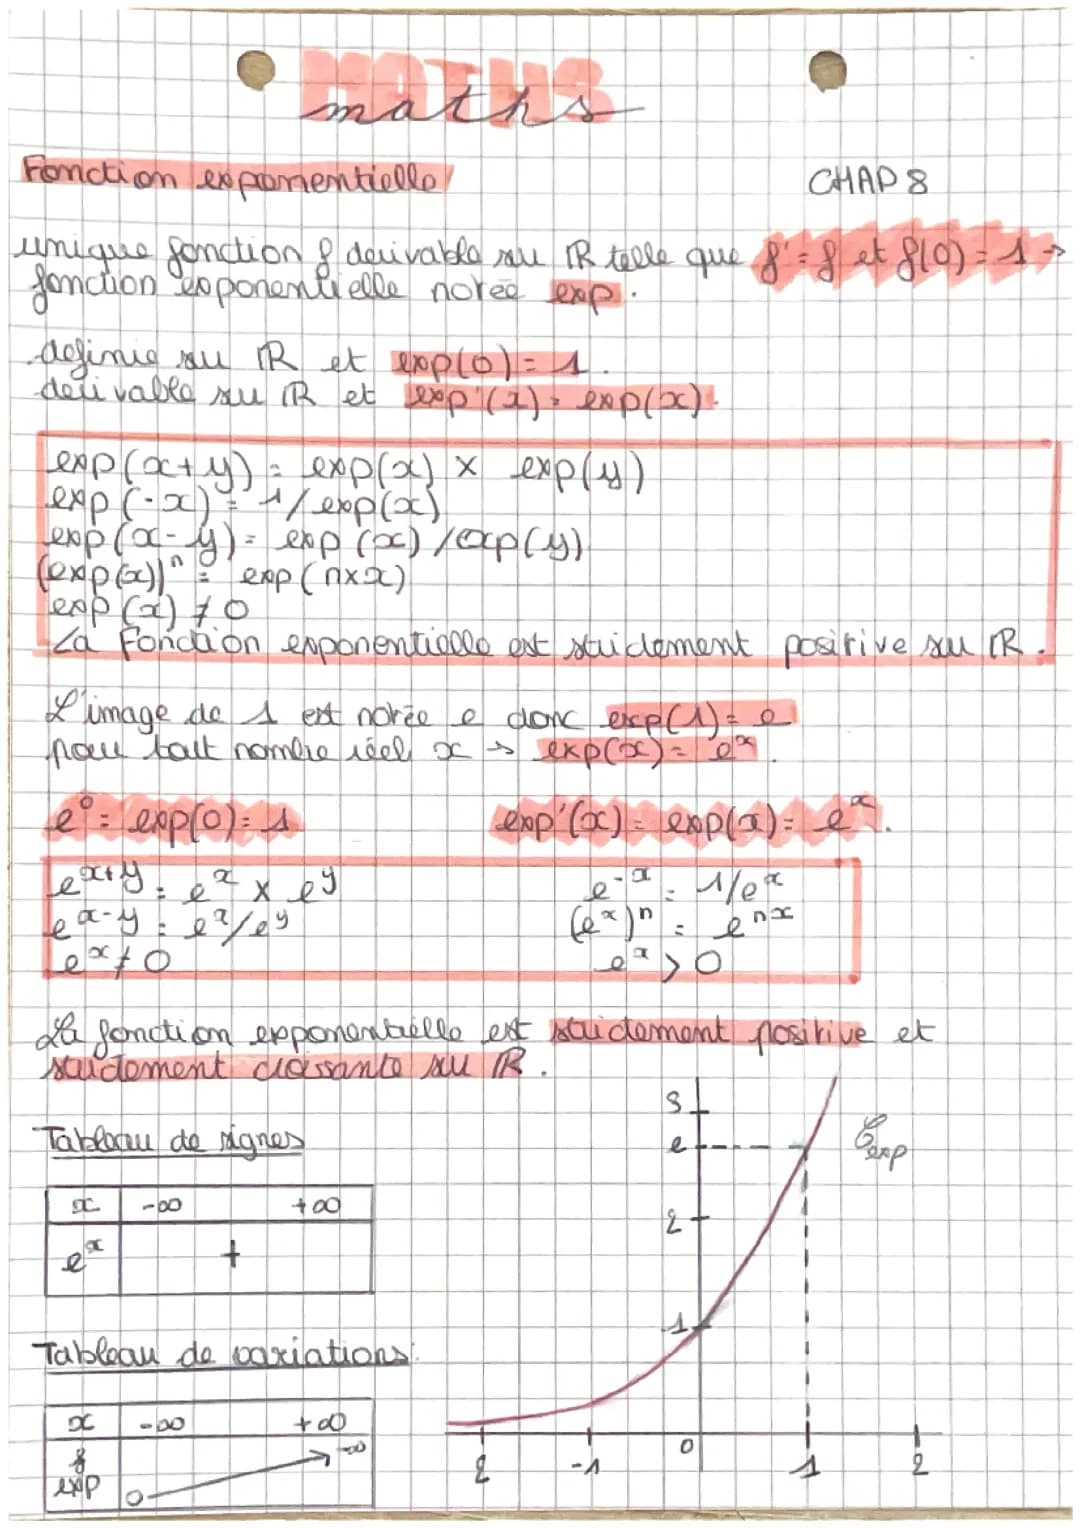 MATHS
maths
Fonction exponentielle
CHAP 8
unique fonction f derivable su R telle que f' = f et f(0) = 1 →
fonction exponentielle notée exp.
definie su ℝ et exp(0) = 1.
derivable su ℝ et exp'(x) = exp(x).
exp(x+y) = exp(x) × exp(y)
exp(-x) = 1/exp(x)
exp(x-y) = exp(x)/exp(y)
(exp(x))ⁿ = exp(n×x)
exp(x) ≠ 0
La Fonction exponentielle est strictement positive su ℝ.
L'image de 1 est notée e donc exp(1) = e
pour tout nombre réel x → exp(x) = eˣ.
e⁰ = exp(0) = 1
exp'(x) = exp(x) = eˣ.
eˣ⁺ʸ = eˣ × eʸ
e⁻ˣ = 1/eˣ
eˣ⁻ʸ = eˣ/eʸ
(eˣ)ⁿ = eⁿˣ
eˣ ≠ 0
eˣ > 0
La fonction exponentielle est strictement positive et
strictement croissante su ℝ.
Tableau de signes
x -∞ +∞
eˣ +
Tableau de variations:
x -∞ +∞
f
exp 0 +∞
3
e
2
1
𝒞exp
2 -1 0 1 2